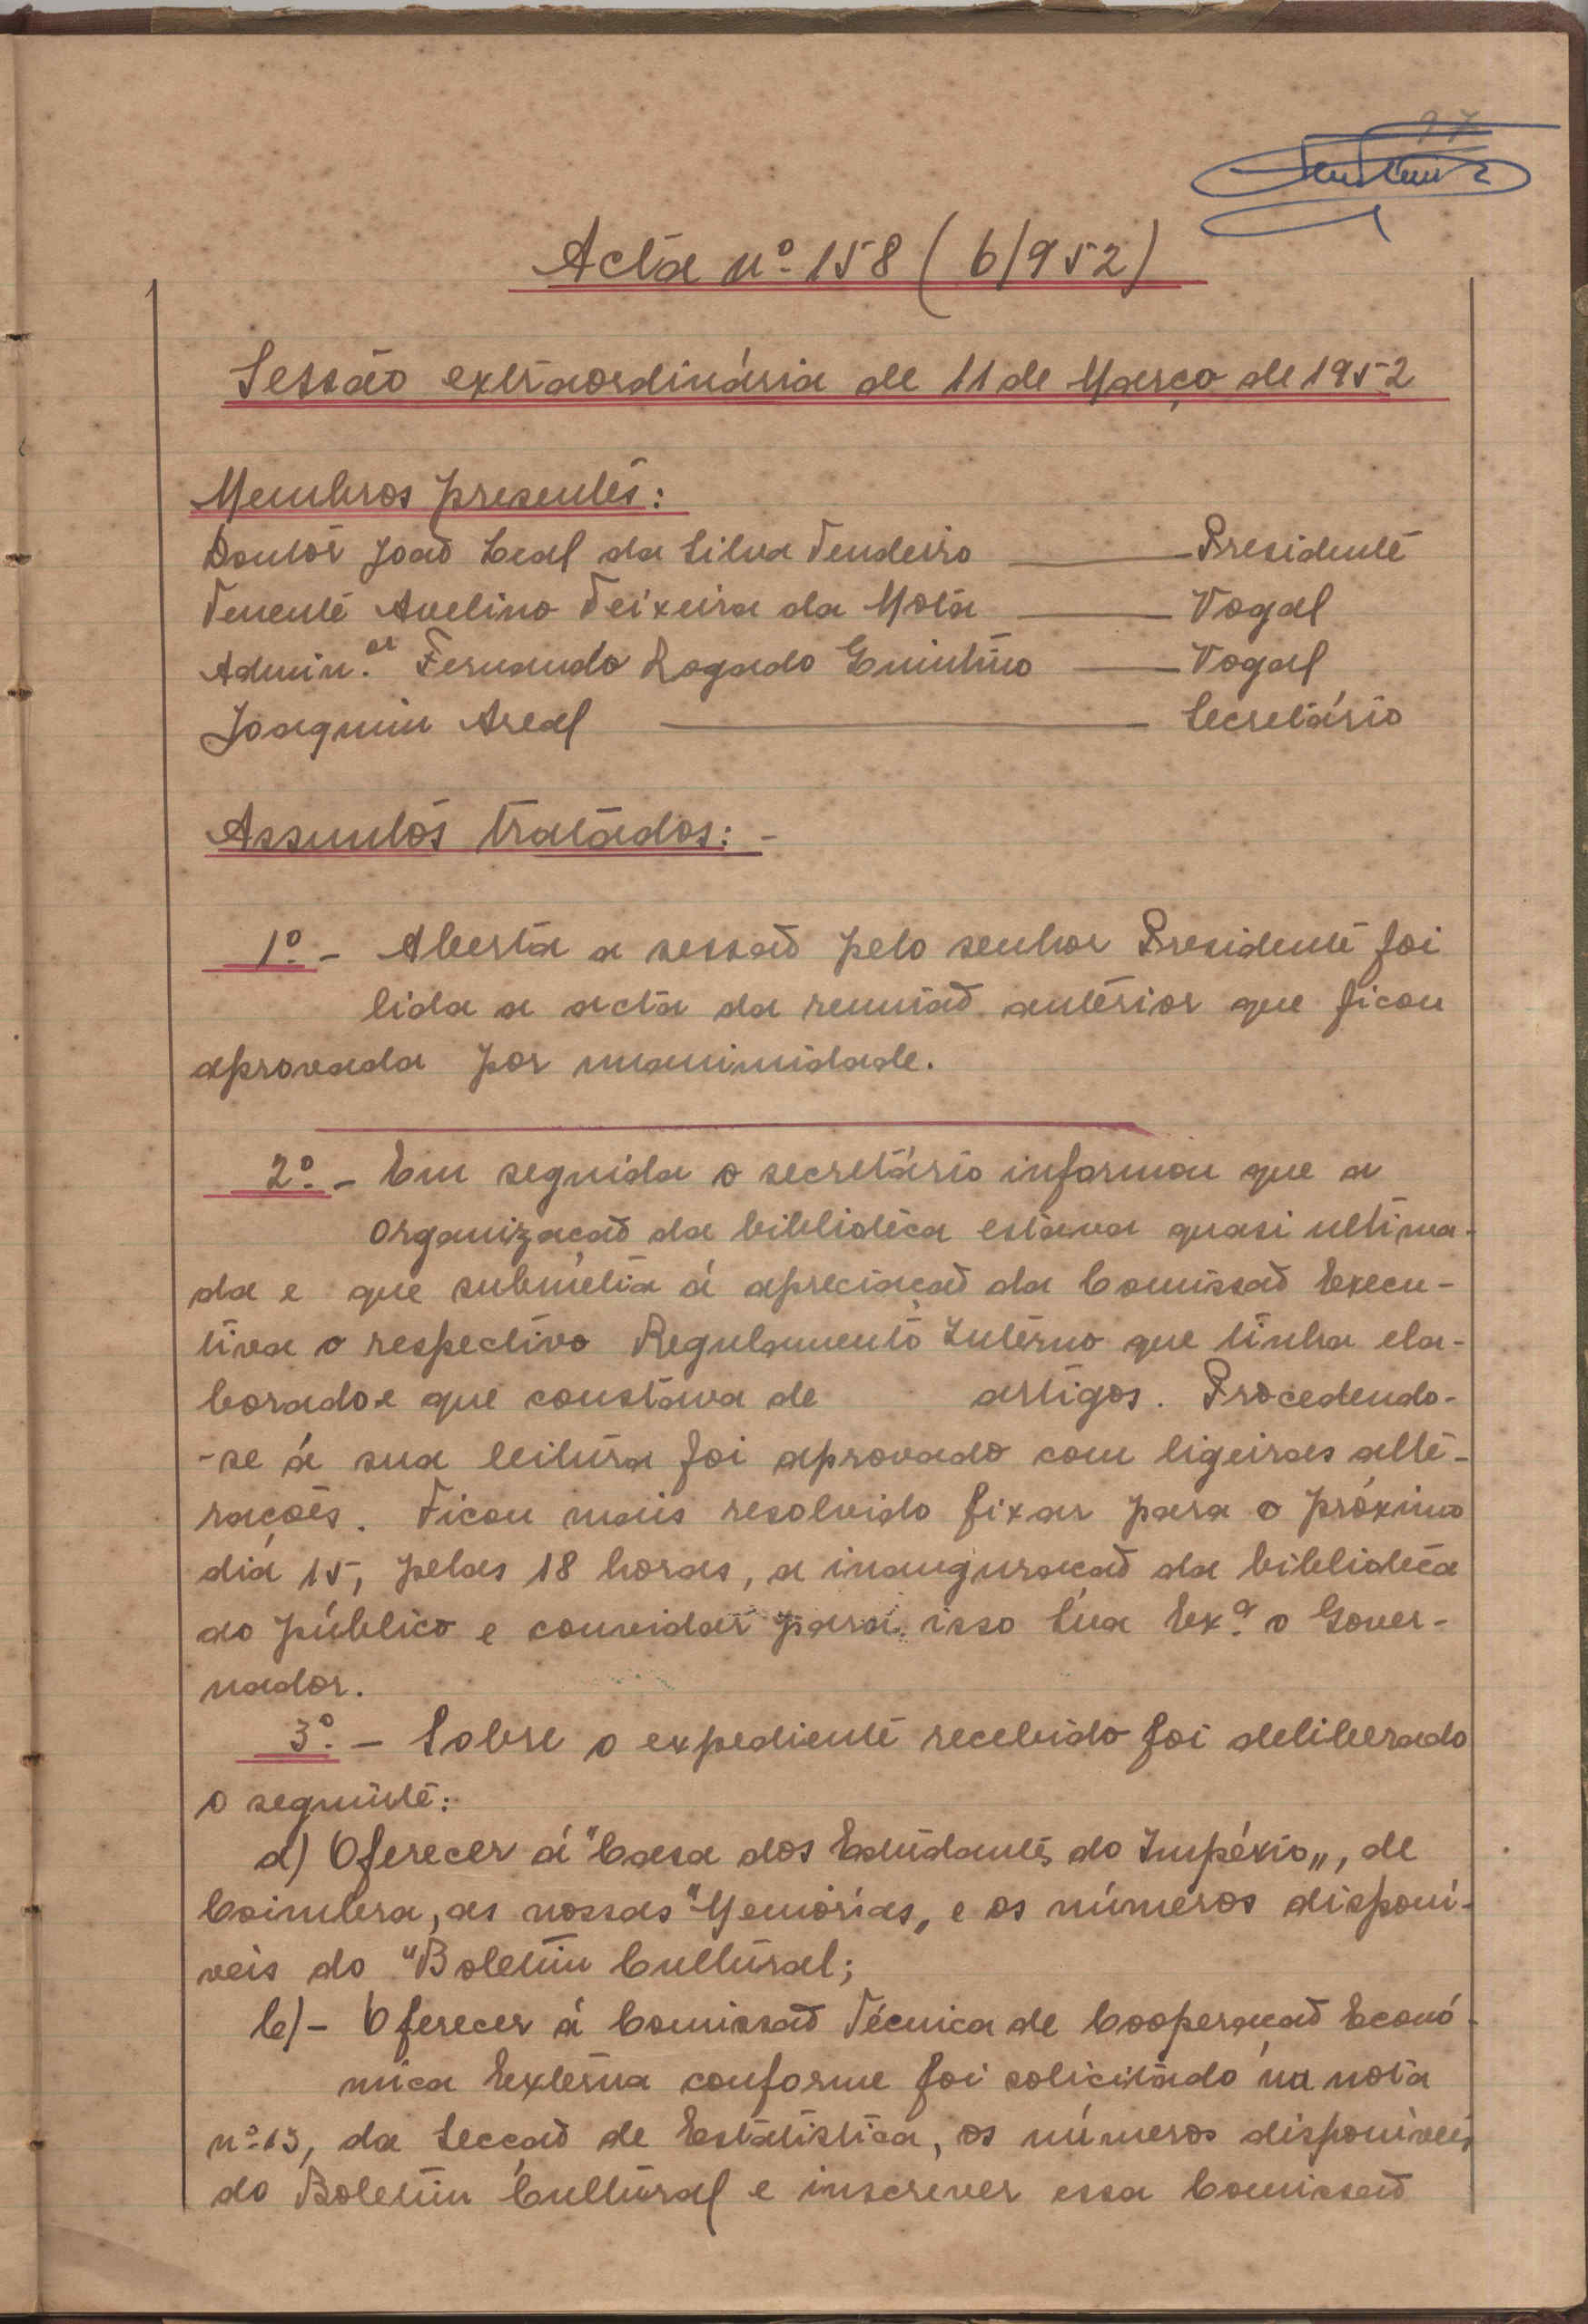 97
Acta nº 158 (6/952)
Sessão extraordinária de 11 de Março de 1952
Membros presentes:
Doutor João Leal da Silva Tendeiro — Presidente
Tenente Avelino Teixeira da Mota — Vogal
Admin.or Fernando Rogado Quintino — Vogal
Joaquim Areal — Secretário
Assuntos tratados: -
1º - Aberta a sessão pelo senhor Presidente foi
lida a acta da reunião anterior que ficou
aprovada por unanimidade.
2º - Em seguida o secretário informou que a
organização da biblioteca estava quasi ultima-
da e que submetia á apreciação da Comissão Execu-
tiva o respectivo Regulamento Interno que tinha ela-
borado e que constava de artigos. Procedendo-
-se á sua leitura foi aprovado com ligeiras alte-
rações. Ficou mais resolvido fixar para o próximo
dia 15, pelas 18 horas, a inauguração da biblioteca
ao público e convidar para isso Sua Ex.ª o Gover-
nador.
3º - Sobre o expediente recebido foi deliberado
o seguinte:
a) Oferecer á "Casa dos Estudantes do Império", de
Coimbra, as nossas "Memórias" e os números disponí-
veis do "Boletim Cultural;
b) - Oferecer á Comissão Técnica de Cooperação Econó-
mica Externa conforme foi solicitado na nota
nº 13, da Secção de Estatística, os números disponíveis
do Boletim Cultural e inscrever essa Comissão